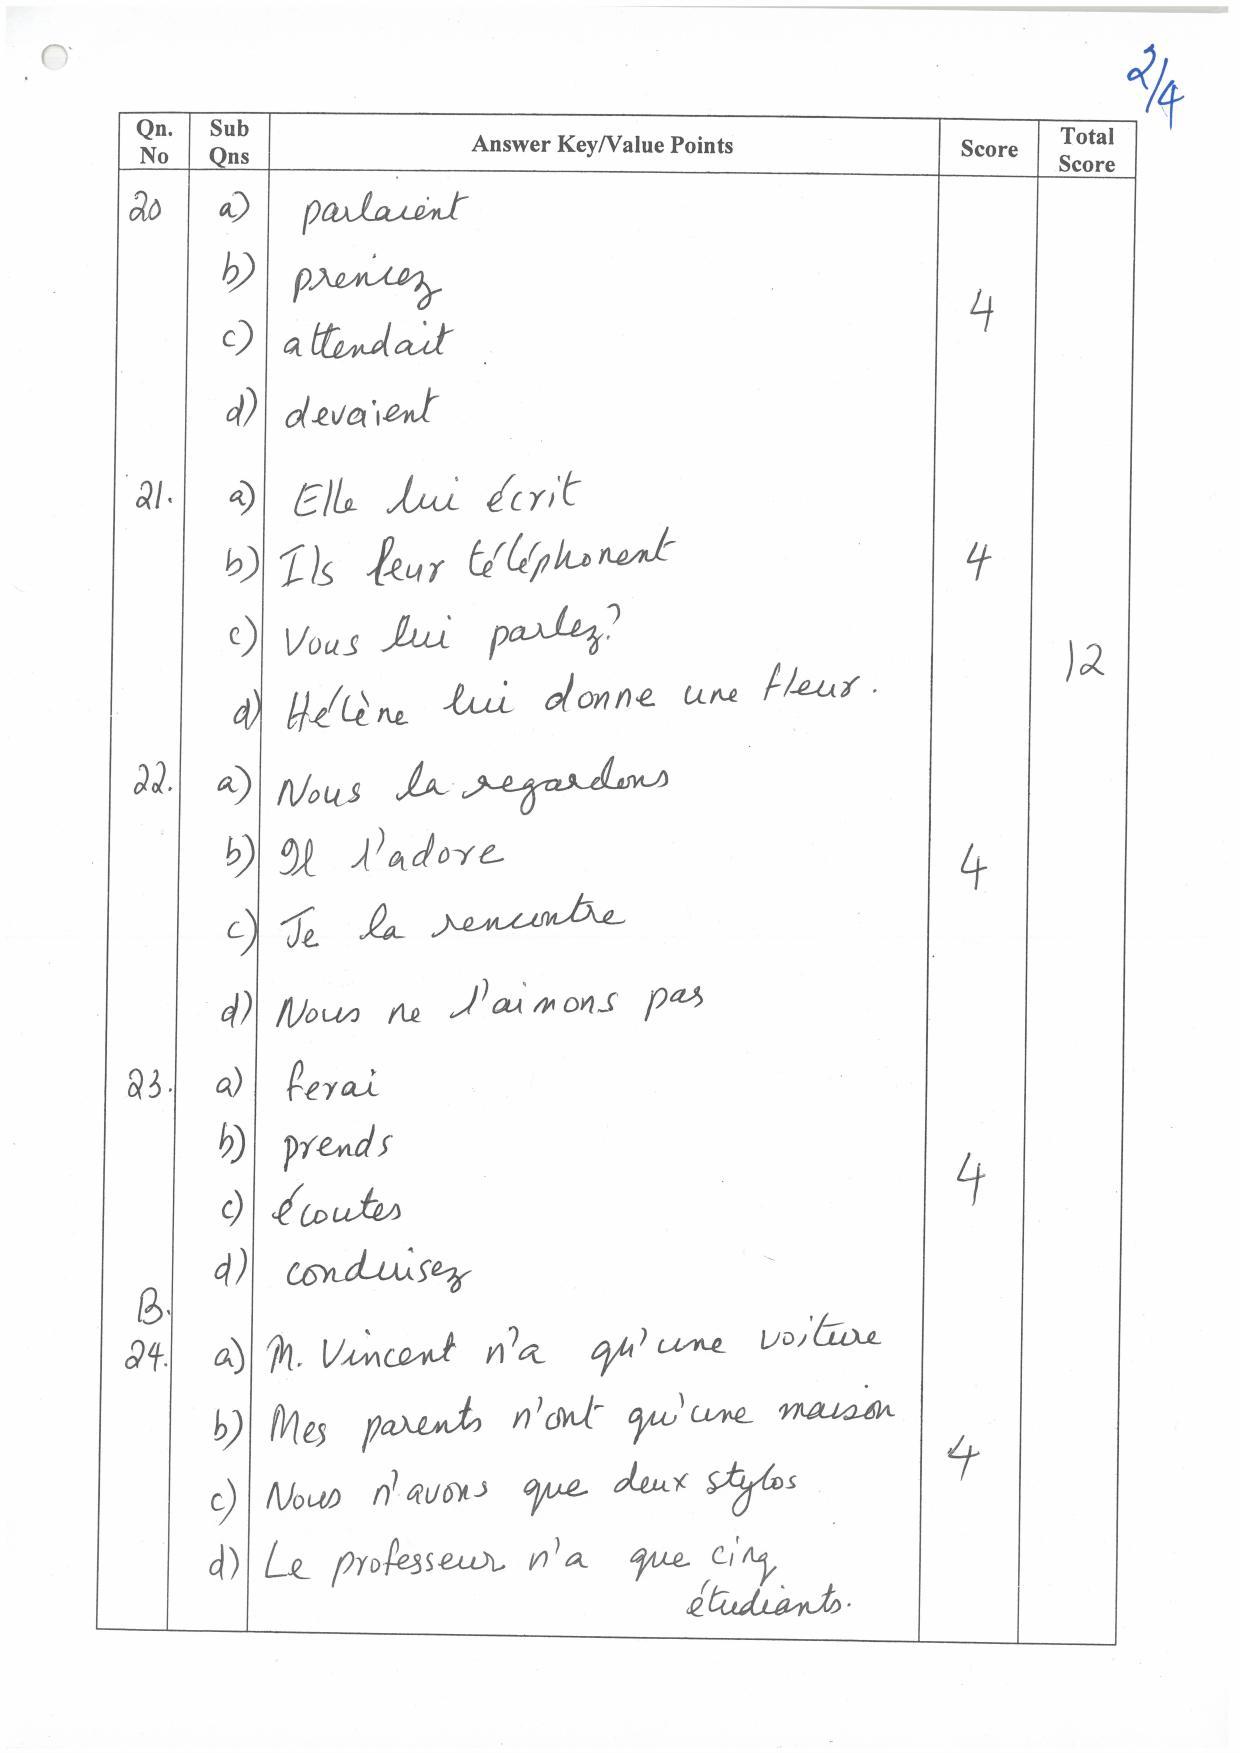 2/4
Qn. No Sub Qns Answer Key/Value Points Score Total Score
20 a) parlaient
b) preniez
4
c) attendait
d) devaient
21. a) Elle lui écrit
b) Ils leur téléphonent 4
c) Vous lui parlez?
12
d) Hélène lui donne une fleur.
22. a) Nous la regardons
b) Il l'adore 4
c) Je la rencontre
d) Nous ne l'aimons pas
23. a) ferai
b) prends
4
c) écoutes
d) conduisez
B.
24. a) M. Vincent n'a qu'une voiture
b) Mes parents n'ont qu'une maison
4
c) Nous n'avons que deux stylos
d) Le professeur n'a que cinq
étudiants.